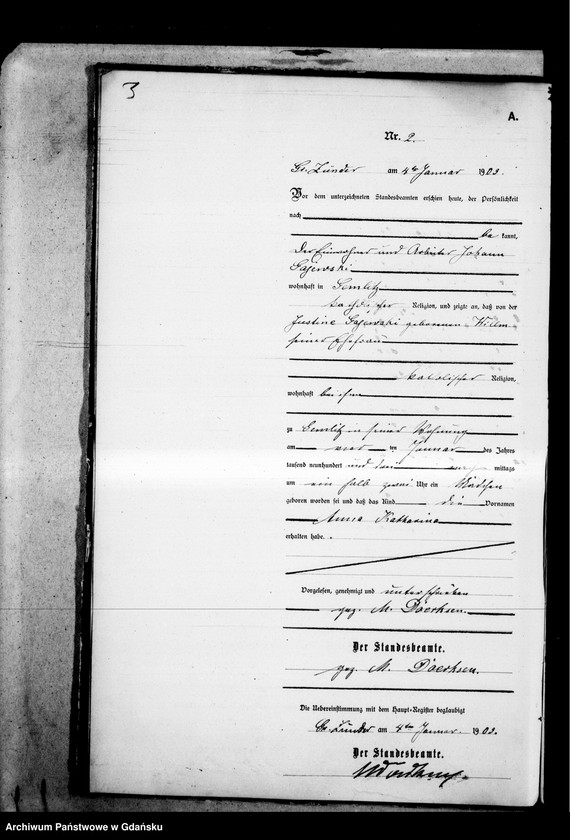 3
A.
Nr. 2.
Gr. Zünder am 4ten Januar 1903.
Vor dem unterzeichneten Standesbeamten erschien heute, der Persönlichkeit
nach
be kannt,
der Einwohner und Arbeiter Johann
Gajewski
wohnhaft in Gemlitz
katholischer Religion, und zeigte an, daß von der
Justine Gajewski geborenen
seiner Ehefrau
katolischer Religion,
wohnhaft bei ihm
zu Gemlitz in seiner Wohnung
am Januar des Jahres
tausend neunhundert und drei mittags
um ein halb zwei Uhr ein Mädchen
geboren worden sei und daß das Kind die Vornamen
Anna Katharina
erhalten habe.
Vorgelesen, genehmigt und unterschrieben
gez. M. Doerksen.
Der Standesbeamte.
gez. M. Doerksen.
Die Uebereinstimmung mit dem Haupt-Register beglaubigt
Gr. Zünder am 4ten Januar 1903.
Der Standesbeamte.
Archiwum Państwowe w Gdańsku